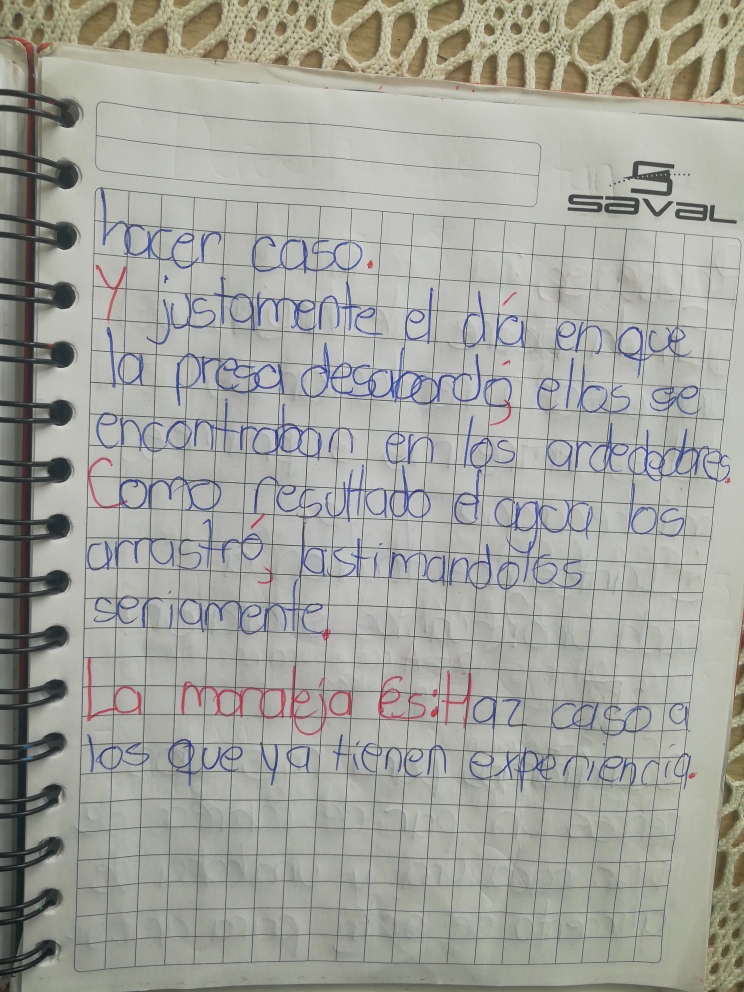 SAVAL
hacer caso.
Y justamente el día en que
la presa desabordó, ellos se
encontraban en los ardededores.
Como resultado el agua los
arrastró, lastimandolos
seriamente.
La moraleja es: Haz caso a
los que ya tienen experiencia.